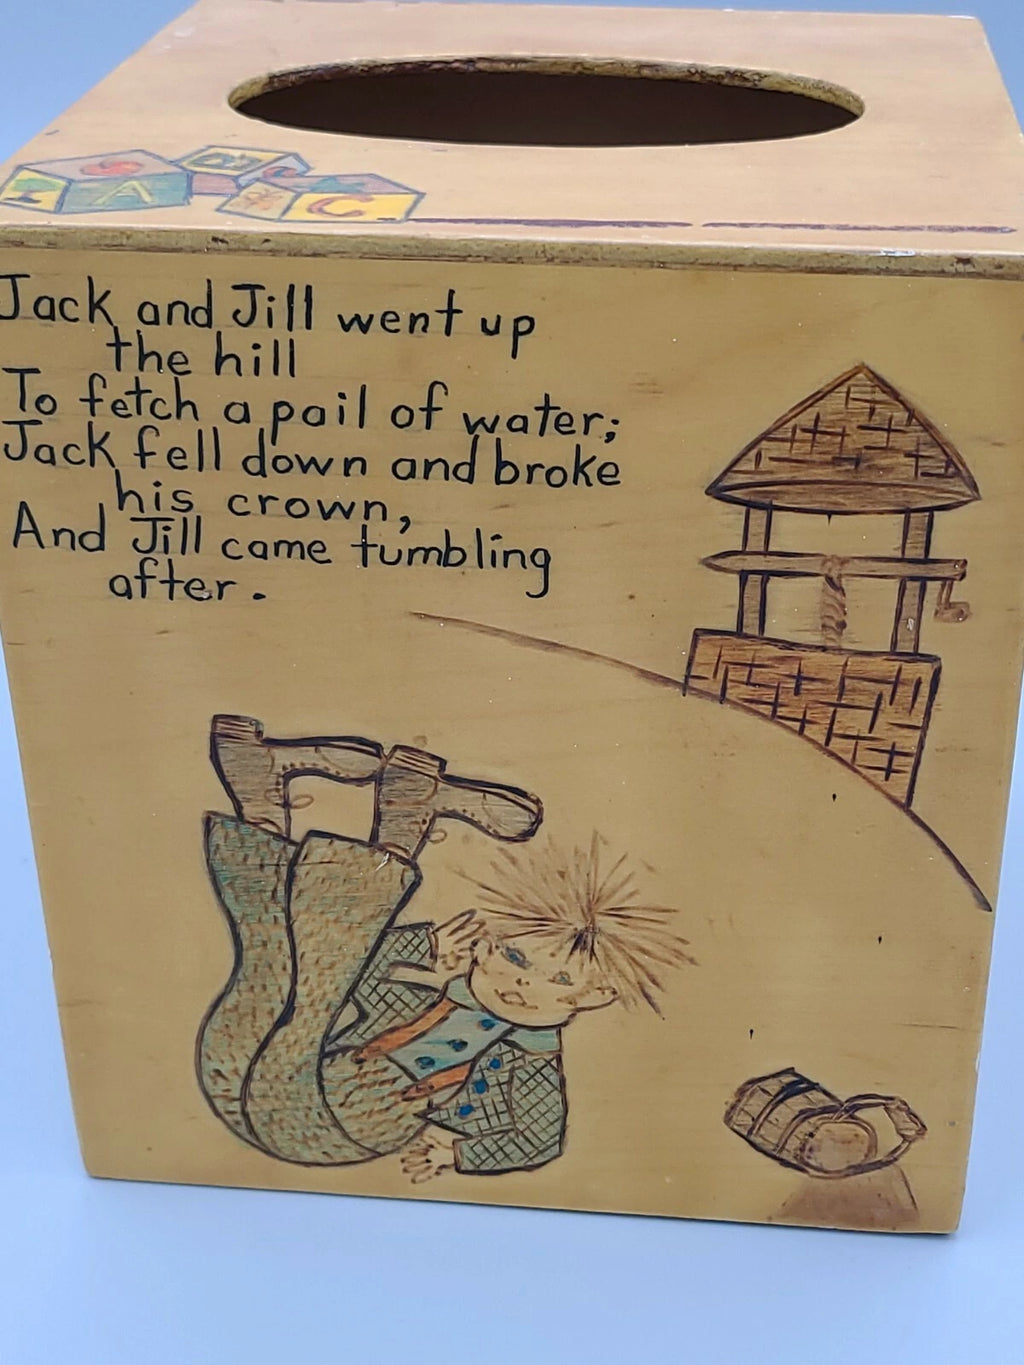 A B C
Jack and Jill went up
the hill
To fetch a pail of water;
Jack fell down and broke
his crown,
And Jill came tumbling
after.